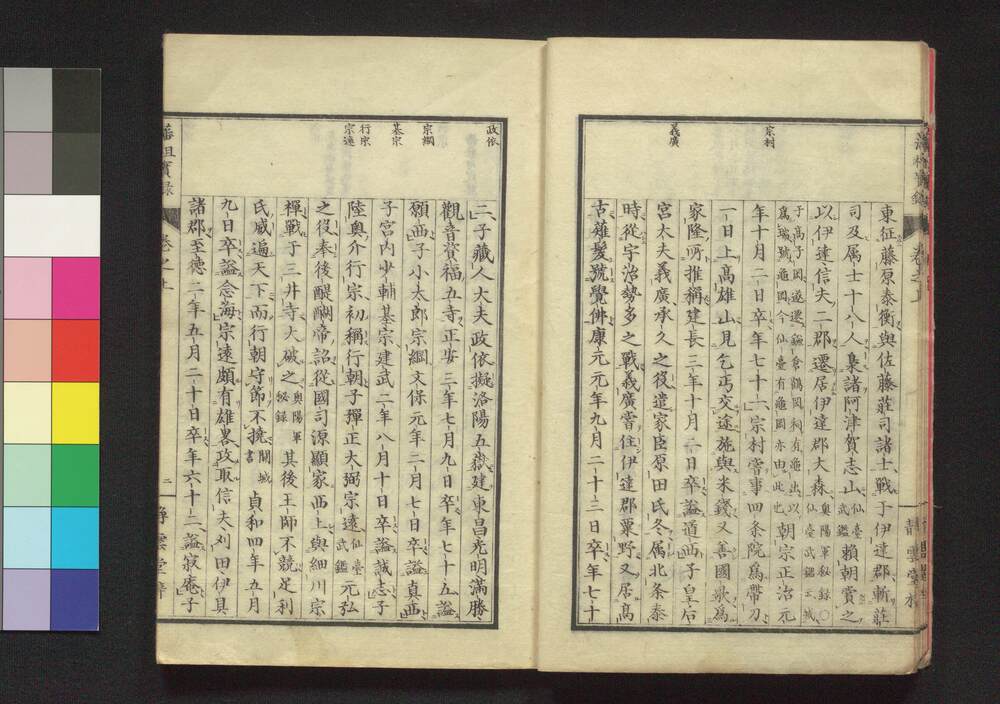 宗村
義廣
東征藤原泰衡與佐藤莊司諸士戰于伊達郡斬莊
司及属士十八人梟諸阿津賀志山仙臺武鑑賴朝賞之
以伊達信夫二郡遷居伊達郡大森奥陽軍秘録〇仙臺武鑑云城
于高子岡遂遷鎌倉鶴岡祠有龜出以爲瑞號龜岡今仙臺有龜岡亦由此也朝宗正治元
年十月二日卒年七十一宗村嘗事四条院爲帶刀
一日上高雄山見乞丐交途施與米錢又善國歌爲
家隆所推稱建長三年十月二日卒謚道西子皇后
宮大夫義廣承久之役遣家臣原田氏冬属北条泰
時從宇治勢多之戰義廣嘗住伊達郡粟野又居髙
古薙髮號覺佛康元元年九月二十三日卒年七十
靜雲堂
政依
宗綱
基宗
行宗
宗遠
二子藏人大夫政依擬洛陽五嶽建東昌光明滿勝
觀音資福五寺正安三年七月九日卒年七十五謚
願西子小太郎宗綱文保元年二月七日卒謚真西
子宮内少輔基宗建武二年八月十日卒謚誠志子
陸奥介行宗初稱行朝子彈正大弼宗遠仙臺武鑑元弘
之役奉後醍醐帝詔從國司源顯家西上與細川宗
禪戰于三井寺大破之奥陽軍秘録其後王師不競足利
氏威遍天下而行朝守節不撓關城書貞和四年五月
九日卒謚念海宗遠頗有雄畧攻取信夫刈田伊具
諸郡至德二年五月二十日卒年六十二謚寂庵子
藩祖實録
卷之上
二
靜雲堂